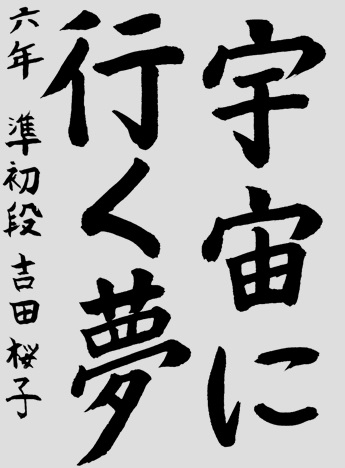 宇宙に
行く夢
六年 準初段 吉田 桜子